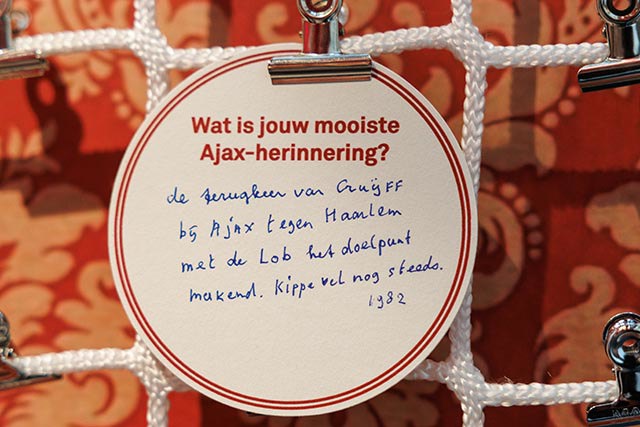 Wat is jouw mooiste
Ajax-herinnering?
de terugkeer van Cruijff
bij Ajax tegen Haarlem
met de Lob het doelpunt
makend. Kippevel nog steeds.
1982